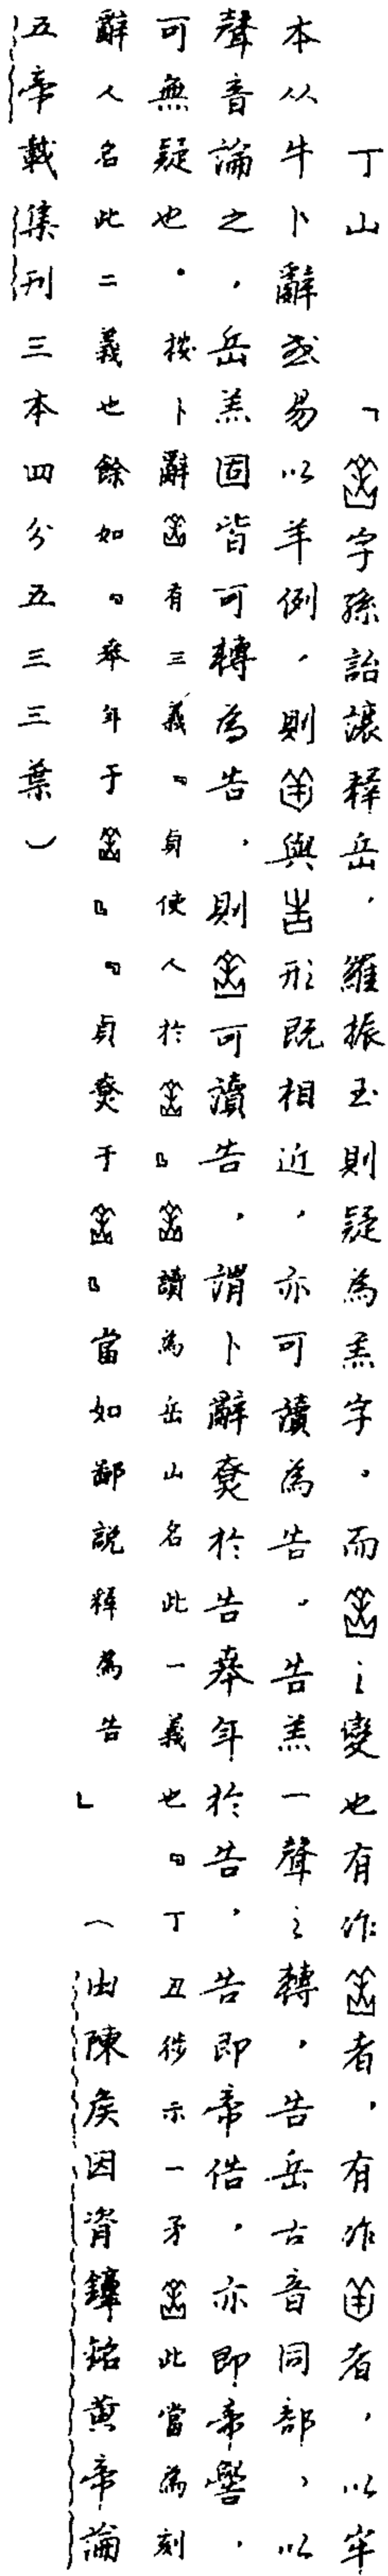 丁山　「字孫詒讓釋岳，羅振玉則疑為羔字。而之變也有作者，有作者，以牢
本从牛卜辭或易以羊例，則與形既相近，亦可讀為告。告羔一聲之轉，告岳古音同部，以
聲音論之，岳羔固皆可轉為告，則可讀告，謂卜辭于告年於告，告即帝俈，亦即帝嚳，
可無疑也。按卜辭有三義『貞使人於』讀為岳山名此一義也『丁丑徙示一矛此當為刻
辭人名此二義也餘如『年于』『貞于』當如鄙說釋為告」　（由陳侯因𬱖錞銘黃帝論
五帝載集刊三本四分五三三葉）